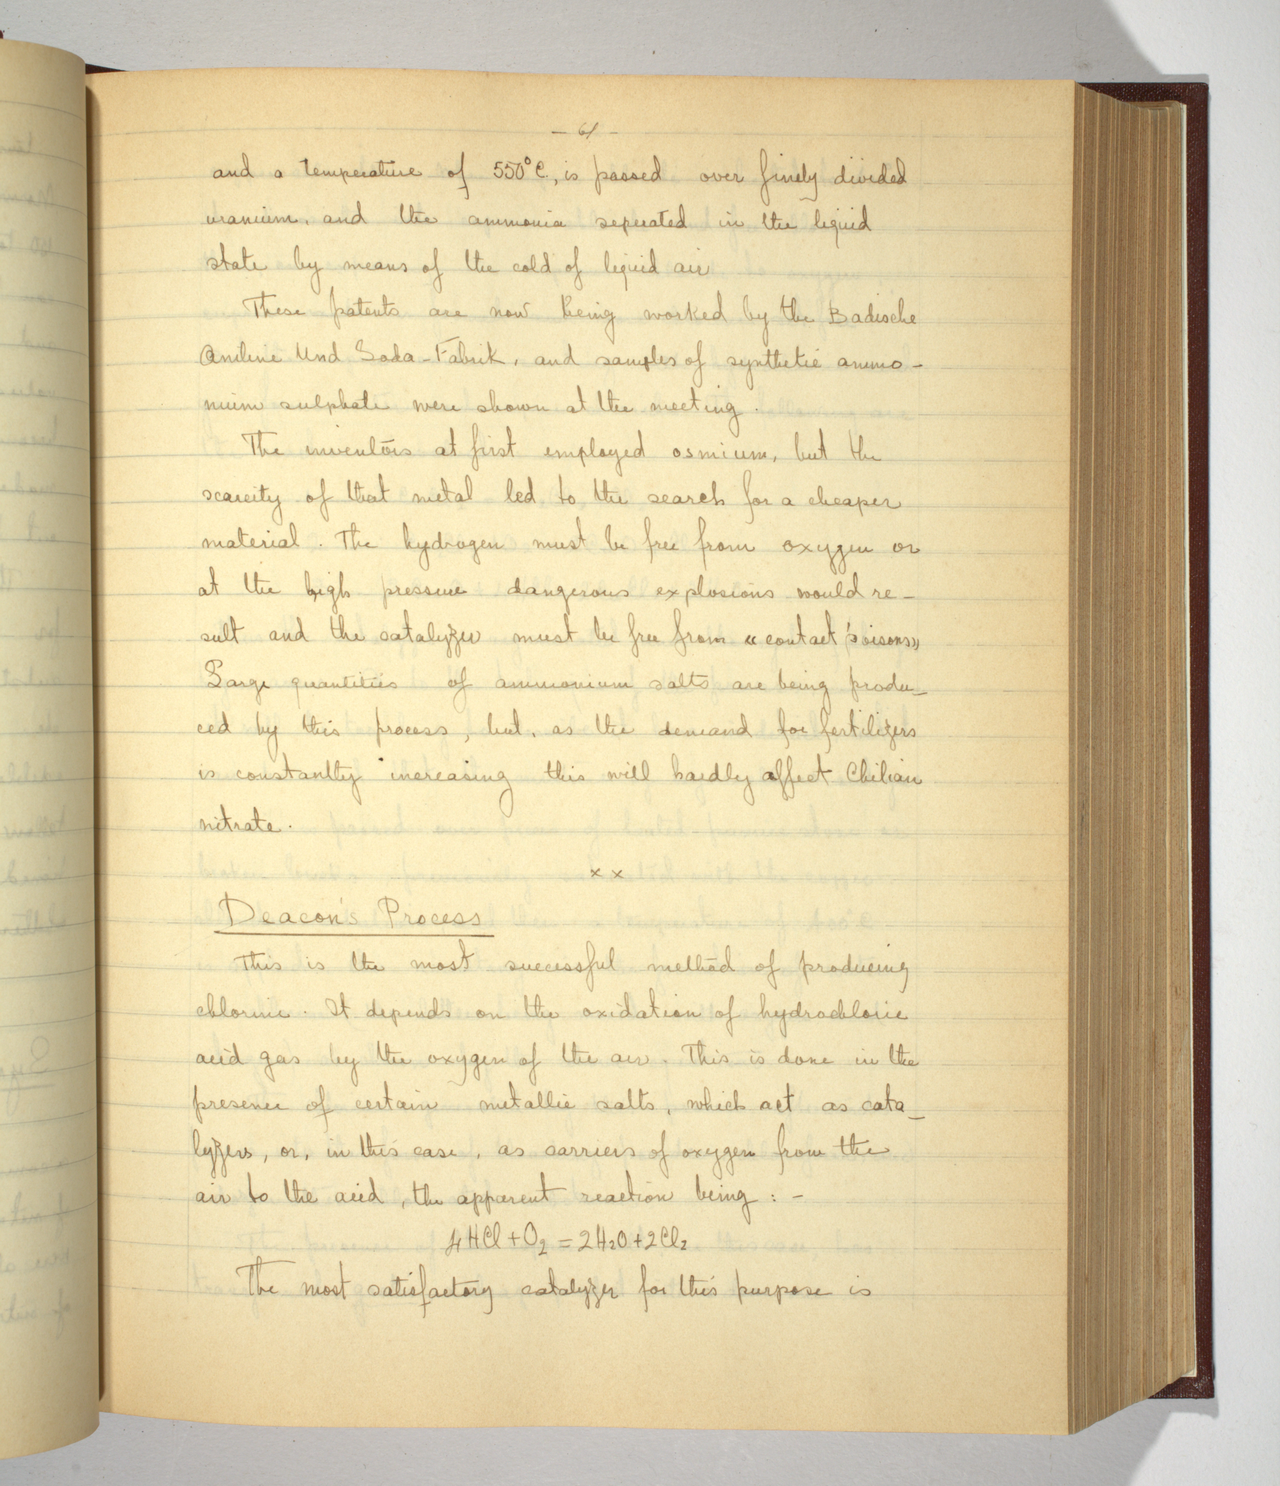 - 61 -
and a temperature of 550°C, is passed over finely divided
uranium, and the ammonia seperated in the liquid
state by means of the cold of liquid air
These patents are now being worked by the Badische
Aniline Und Soda-Fabrik, and samples of synthetic ammo-
nium sulphate were shown at the meeting.
The inventors at first employed osmium, but the
scarcity of that metal led to the search for a cheaper
material. The hydrogen must be free from oxygen or
at the high pressure dangerous explosions would re-
sult and the catalyzer must be free from "contact poisons"
Large quantities of ammonium salts are being produ-
ced by this process, but, as the demand for fertilizers
is constantly increasing this will hardly affect Chilian
nitrate.
x x
Deacon's Process
This is the most successful method of producing
chlorine. It depends on the oxidation of hydrochloric
acid gas by the oxygen of the air. This is done in the
presence of certain metallic salts, which act as cata-
lyzers, or, in this case, as carriers of oxygen from the
air to the acid, the apparent reaction being: -
4HCl + O₂ = 2H₂O + 2Cl₂
The most satisfactory catalyzer for this purpose is